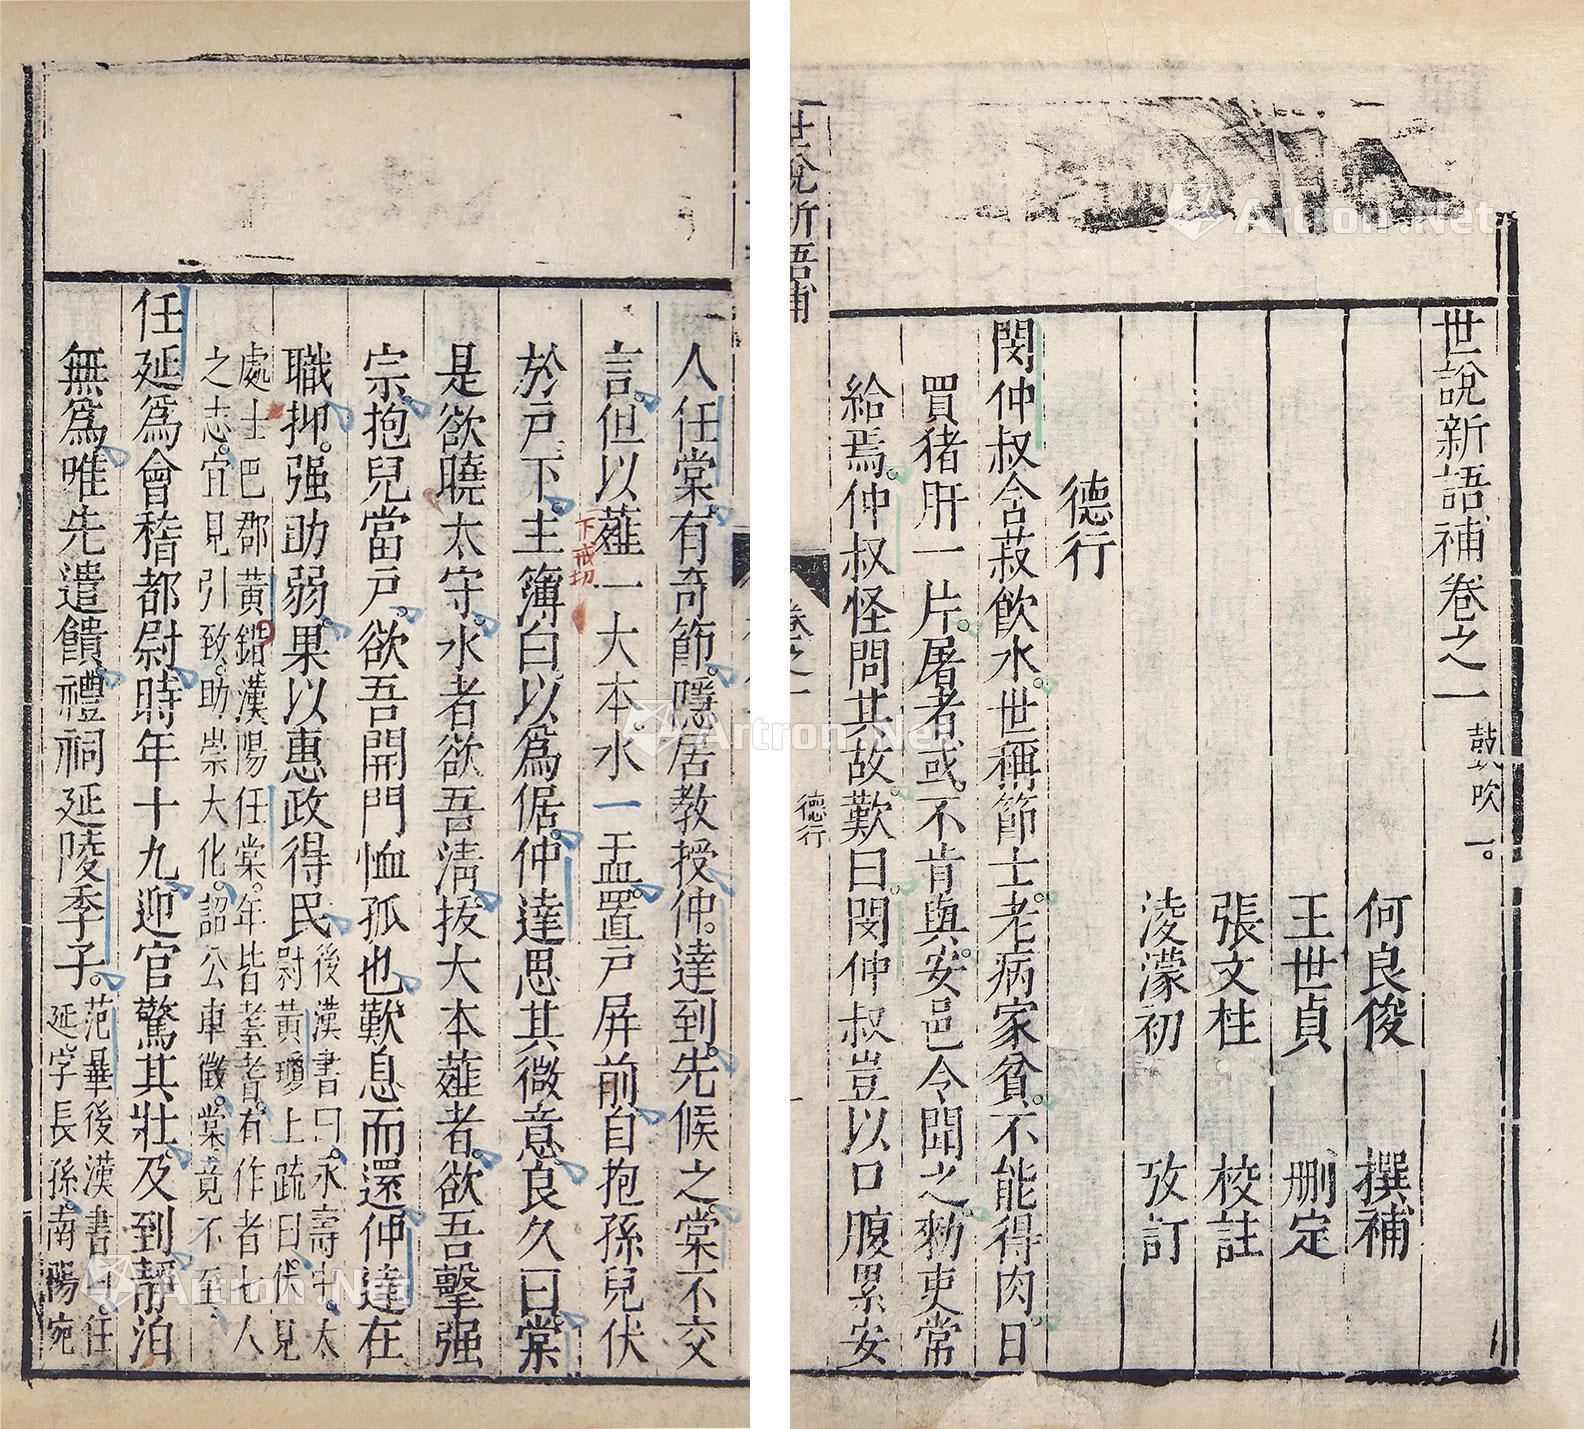 世說新語補卷之一 鼓吹一。
何良俊 撰補
王世貞 刪定
張文柱 校註
淩濛初 攷訂
德行
閔仲叔含菽飲水。世稱節士。老病家貧。不能得肉。日
買猪肝一片。屠者或不肯與。安邑令聞之。勑吏常
給焉。仲叔怪問其故。歎曰。閔仲叔豈以口腹累安
世說新語補
卷之一
德行
一
人任棠。有奇節。隱居教授。仲達到。先候之。棠不交
言。但以薤一大本。水一盂。置戸屏前。自抱孫兒伏
下戒切
於戸下。主簿白。以爲倨。仲達思其微意。良久曰。棠
是欲曉太守。水者欲吾淸。拔大本薤者。欲吾擊强
宗。抱兒當戸。欲吾開門恤孤也。歎息而還。仲達在
職。抑强助弱。果以惠政得民 後漢書曰。永壽中。太
尉黃瓊上疏曰。伏見
處士巴郡黃錯漢陽任棠。年皆耆耋。有作者七人
之志。宜見引致。助崇大化。詔公車徵。棠竟不至。
任延爲會稽都尉。時年十九。迎官驚其壯。及到靜泊
無爲。唯先遣饋。禮祠延陵季子。 范曄後漢書曰。任
延。字長孫。南陽宛
Artron.Net
Artron.Net
Artron.Net